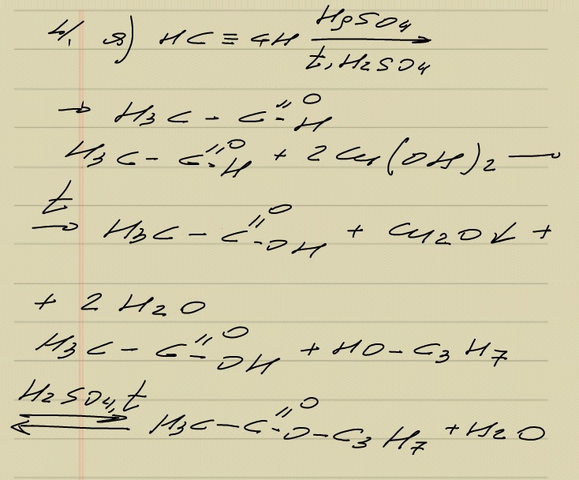 4, я) HC ≡ CH HgSO4
t, H2SO4
→ H3C - C =O -H
H3C - C =O -H + 2Cu(OH)2 —
t → H3C - C =O -OH + Cu2O↓ +
+ 2 H2O
H3C - C =O -OH + HO - C3H7
H2SO4, t ⇄ H3C - C =O -O - C3H7 + H2O